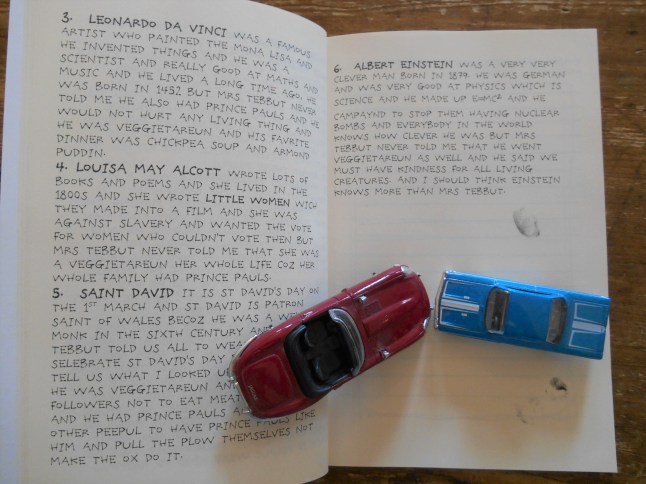 3. LEONARDO DA VINCI WAS A FAMOUS
ARTIST WHO PAINTED THE MONA LISA AND
HE INVENTED THINGS AND HE WAS A
SCIENTIST AND REALLY GOOD AT MATHS AND
MUSIC AND HE LIVED A LONG TIME AGO. HE
WAS BORN IN 1452 BUT MRS TEBBUT NEVER
TOLD ME HE ALSO HAD PRINCE PAULS AND HE
WOULD NOT HURT ANY LIVING THING AND
HE WAS VEGGIETAREUN AND HIS FAVRITE
DINNER WAS CHICKPEA SOUP AND ARMOND
PUDDIN.
4. LOUISA MAY ALCOTT WROTE LOTS OF
BOOKS AND POEMS AND SHE LIVED IN THE
1800S AND SHE WROTE LITTLE WOMEN WICH
THEY MADE INTO A FILM AND SHE WAS
AGAINST SLAVERY AND WANTED THE VOTE
FOR WOMEN WHO COULDN'T VOTE THEN BUT
MRS TEBBUT NEVER TOLD ME THAT SHE WAS
A VEGGIETAREUN HER WHOLE LIFE COZ HER
WHOLE FAMILY HAD PRINCE PAULS.
5. SAINT DAVID IT IS ST DAVID'S DAY ON
THE 1ST MARCH AND ST DAVID IS PATRON
SAINT OF WALES BECOZ HE WAS A
MONK IN THE SIXTH CENTURY AND
TEBBUT TOLD US ALL TO
SELEBRATE ST DAVID'S DAY
TELL US WHAT I LOOKED
HE WAS VEGGIETAREUN AND
FOLLOWERS NOT TO EAT MEAT
AND HE HAD PRINCE PAULS
OTHER PEEPUL TO HAVE PRINCE PAULS LIKE
HIM AND PULL THE PLOW THEMSELVES NOT
MAKE THE OX DO IT.
6. ALBERT EINSTEIN WAS A VERY VERY
CLEVER MAN BORN IN 1879. HE WAS GERMAN
AND WAS VERY GOOD AT PHYSICS WHICH IS
SCIENCE AND HE MADE UP E=MC² AND HE
CAMPAYND TO STOP THEM HAVING NUCLEAR
BOMBS AND EVERYBODY IN THE WORLD
KNOWS HOW CLEVER HE WAS BUT MRS
TEBBUT NEVER TOLD ME THAT HE WENT
VEGGIETAREUN AS WELL AND HE SAID WE
MUST HAVE KINDNESS FOR ALL LIVING
CREATURES. AND I SHOULD THINK EINSTEIN
KNOWS MORE THAN MRS TEBBUT.